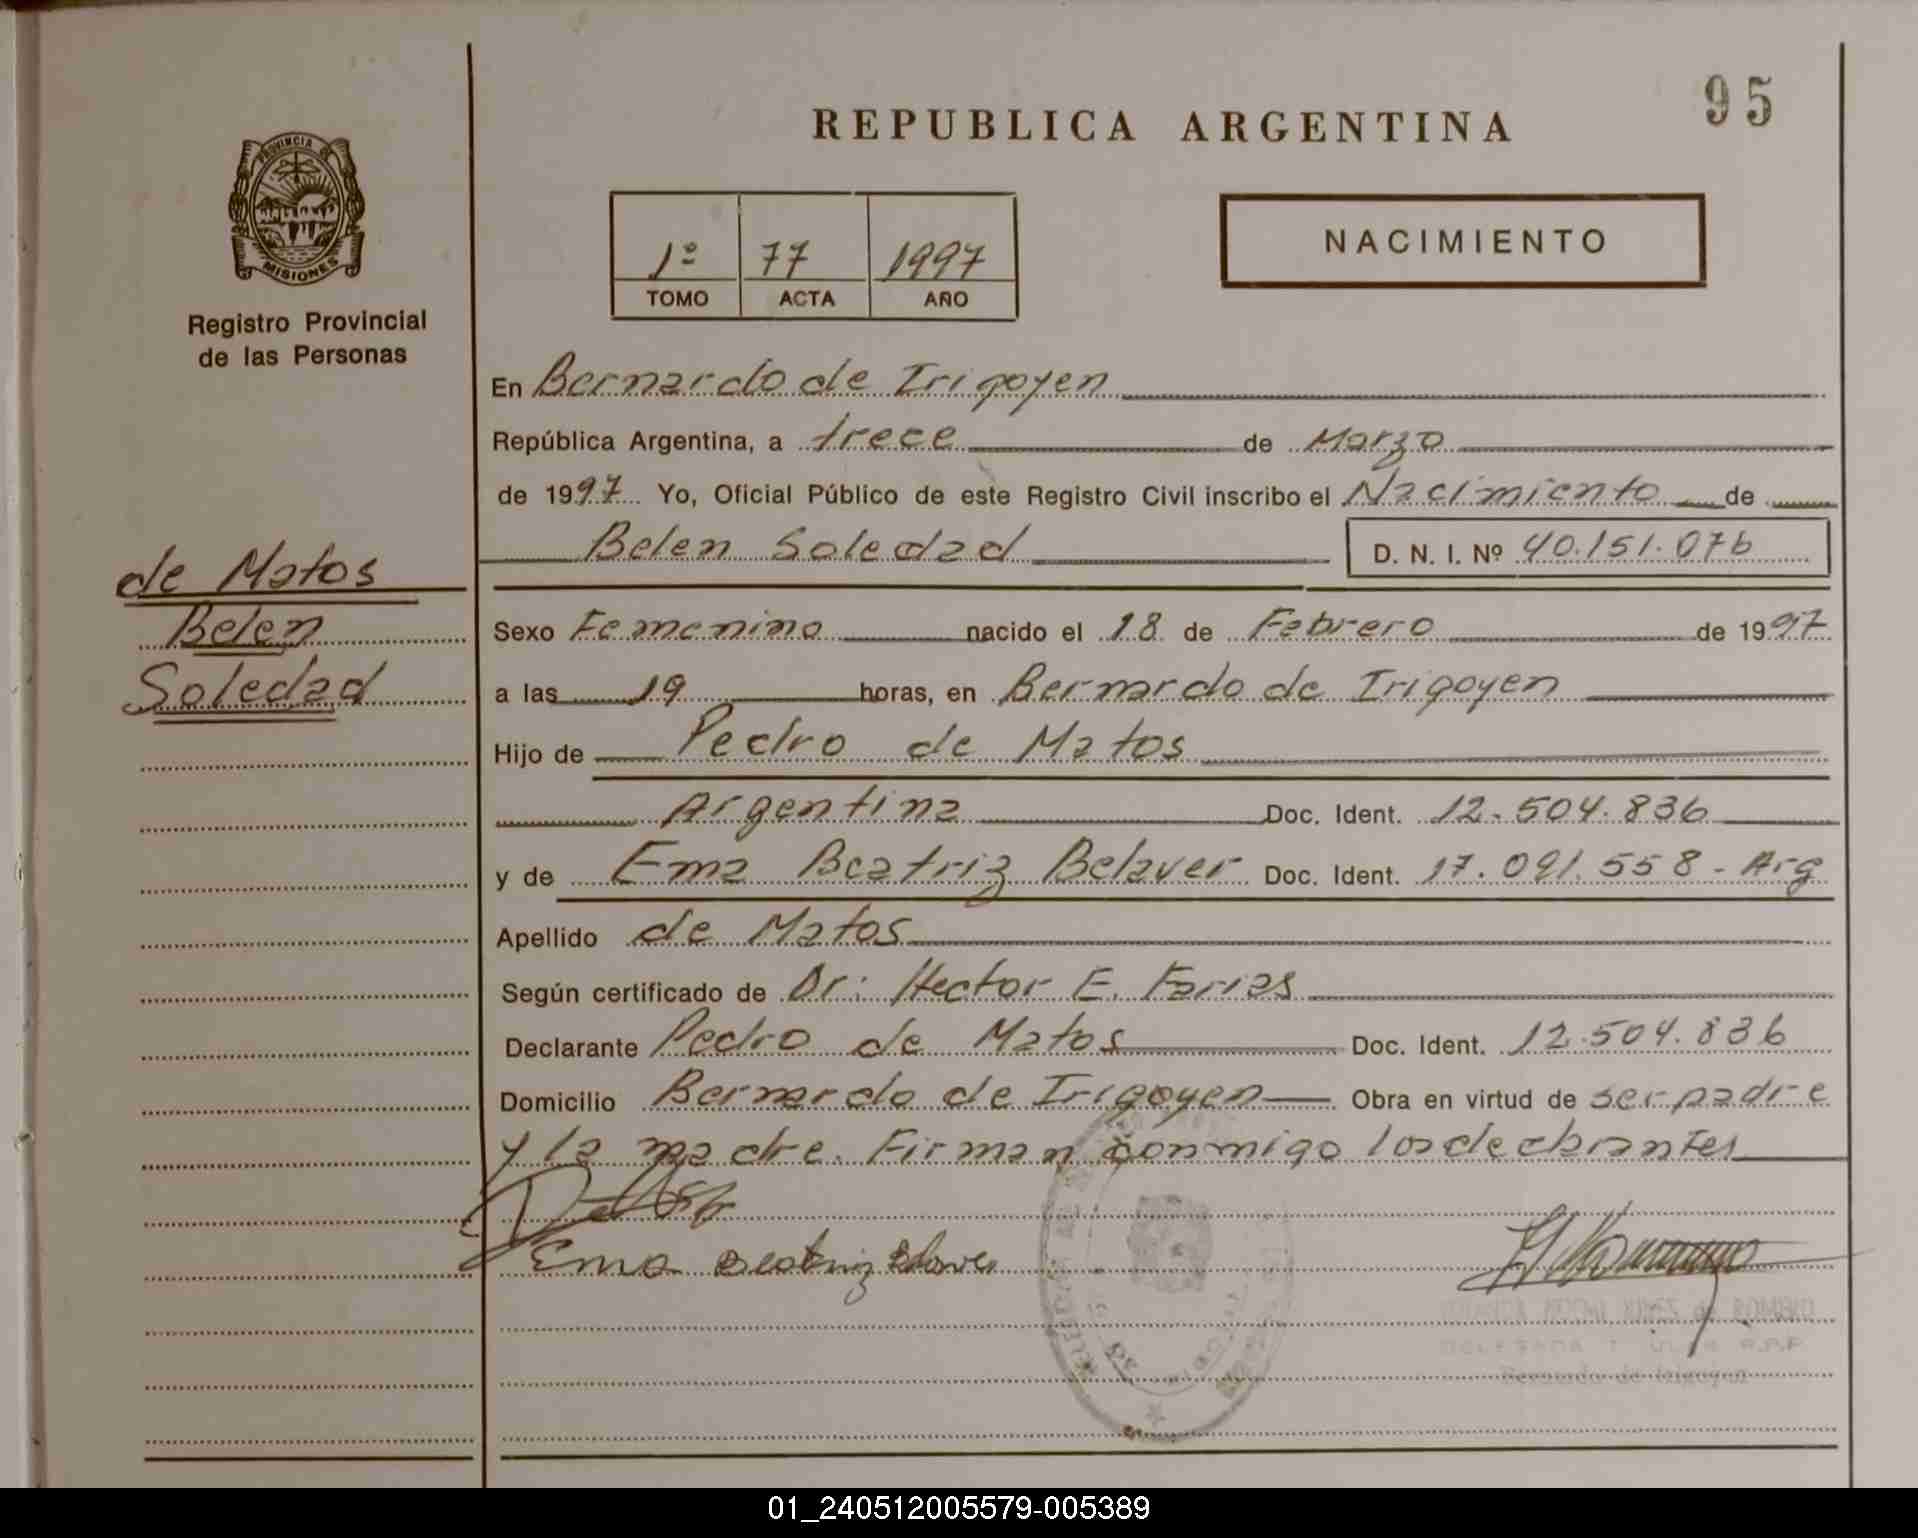 95
REPUBLICA ARGENTINA
PROVINCIA DE
MISIONES
Registro Provincial
de las Personas
1º 77 1997
TOMO ACTA AÑO
NACIMIENTO
En Bernardo de Irigoyen
República Argentina, a trece de Marzo
de 1997 Yo, Oficial Público de este Registro Civil inscribo el Nacimiento de
Belen Soledad D. N. I. Nº 40.151.076
de Matos
Belen
Soledad
Sexo Femenino nacido el 18 de Febrero de 1997
a las 19 horas, en Bernardo de Irigoyen
Hijo de Pedro de Matos
Argentina Doc. Ident. 12.504.836
y de Ema Beatriz Belaver Doc. Ident. 17.091.558 - Arg
Apellido de Matos
Según certificado de Dr: Hector E. Farias
Declarante Pedro de Matos Doc. Ident. 12.504.836
Domicilio Bernardo de Irigoyen Obra en virtud de ser padre
y la madre. Firman conmigo los declarantes
Ema Beatriz
Bernardo de Irigoyen
01_240512005579-005389